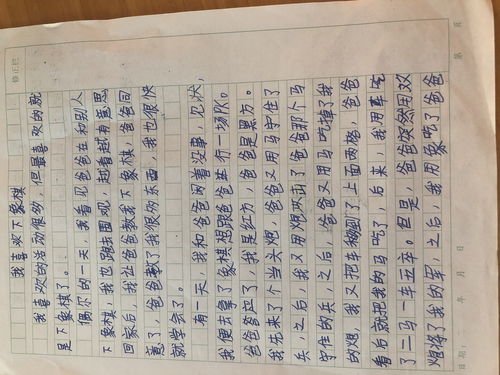 我喜欢下象棋
我喜欢的活动很多，但最喜欢的就
是下象棋了。
偶尔的一天，我看见爸爸在和别人
下象棋，我也跑去围观，越看越有意思
回家后，我让爸爸教我下象棋，爸爸同
意了，爸爸教了我很多东西，我也很快
就学会了。
有一天，我和爸爸闲着没事，见状，
我便去拿了象棋想跟爸爸举行一场PK。
爸爸答应了，我是红方，爸爸是黑方。
我先来了个当头炮，爸爸又用马守住了
兵，之后，我又用炮攻击了爸爸那个马
守住的兵，之后，爸爸又用马吃掉了我
的炮，我又把车移到了上面两格，爸爸
看后就把我的马吃了，后来，我用車吃
了二马一车五卒。但是，爸爸突然用双
炮将了我的军，之后，我用象吃了爸爸
修正栏
日期：
年
月
日
第
页